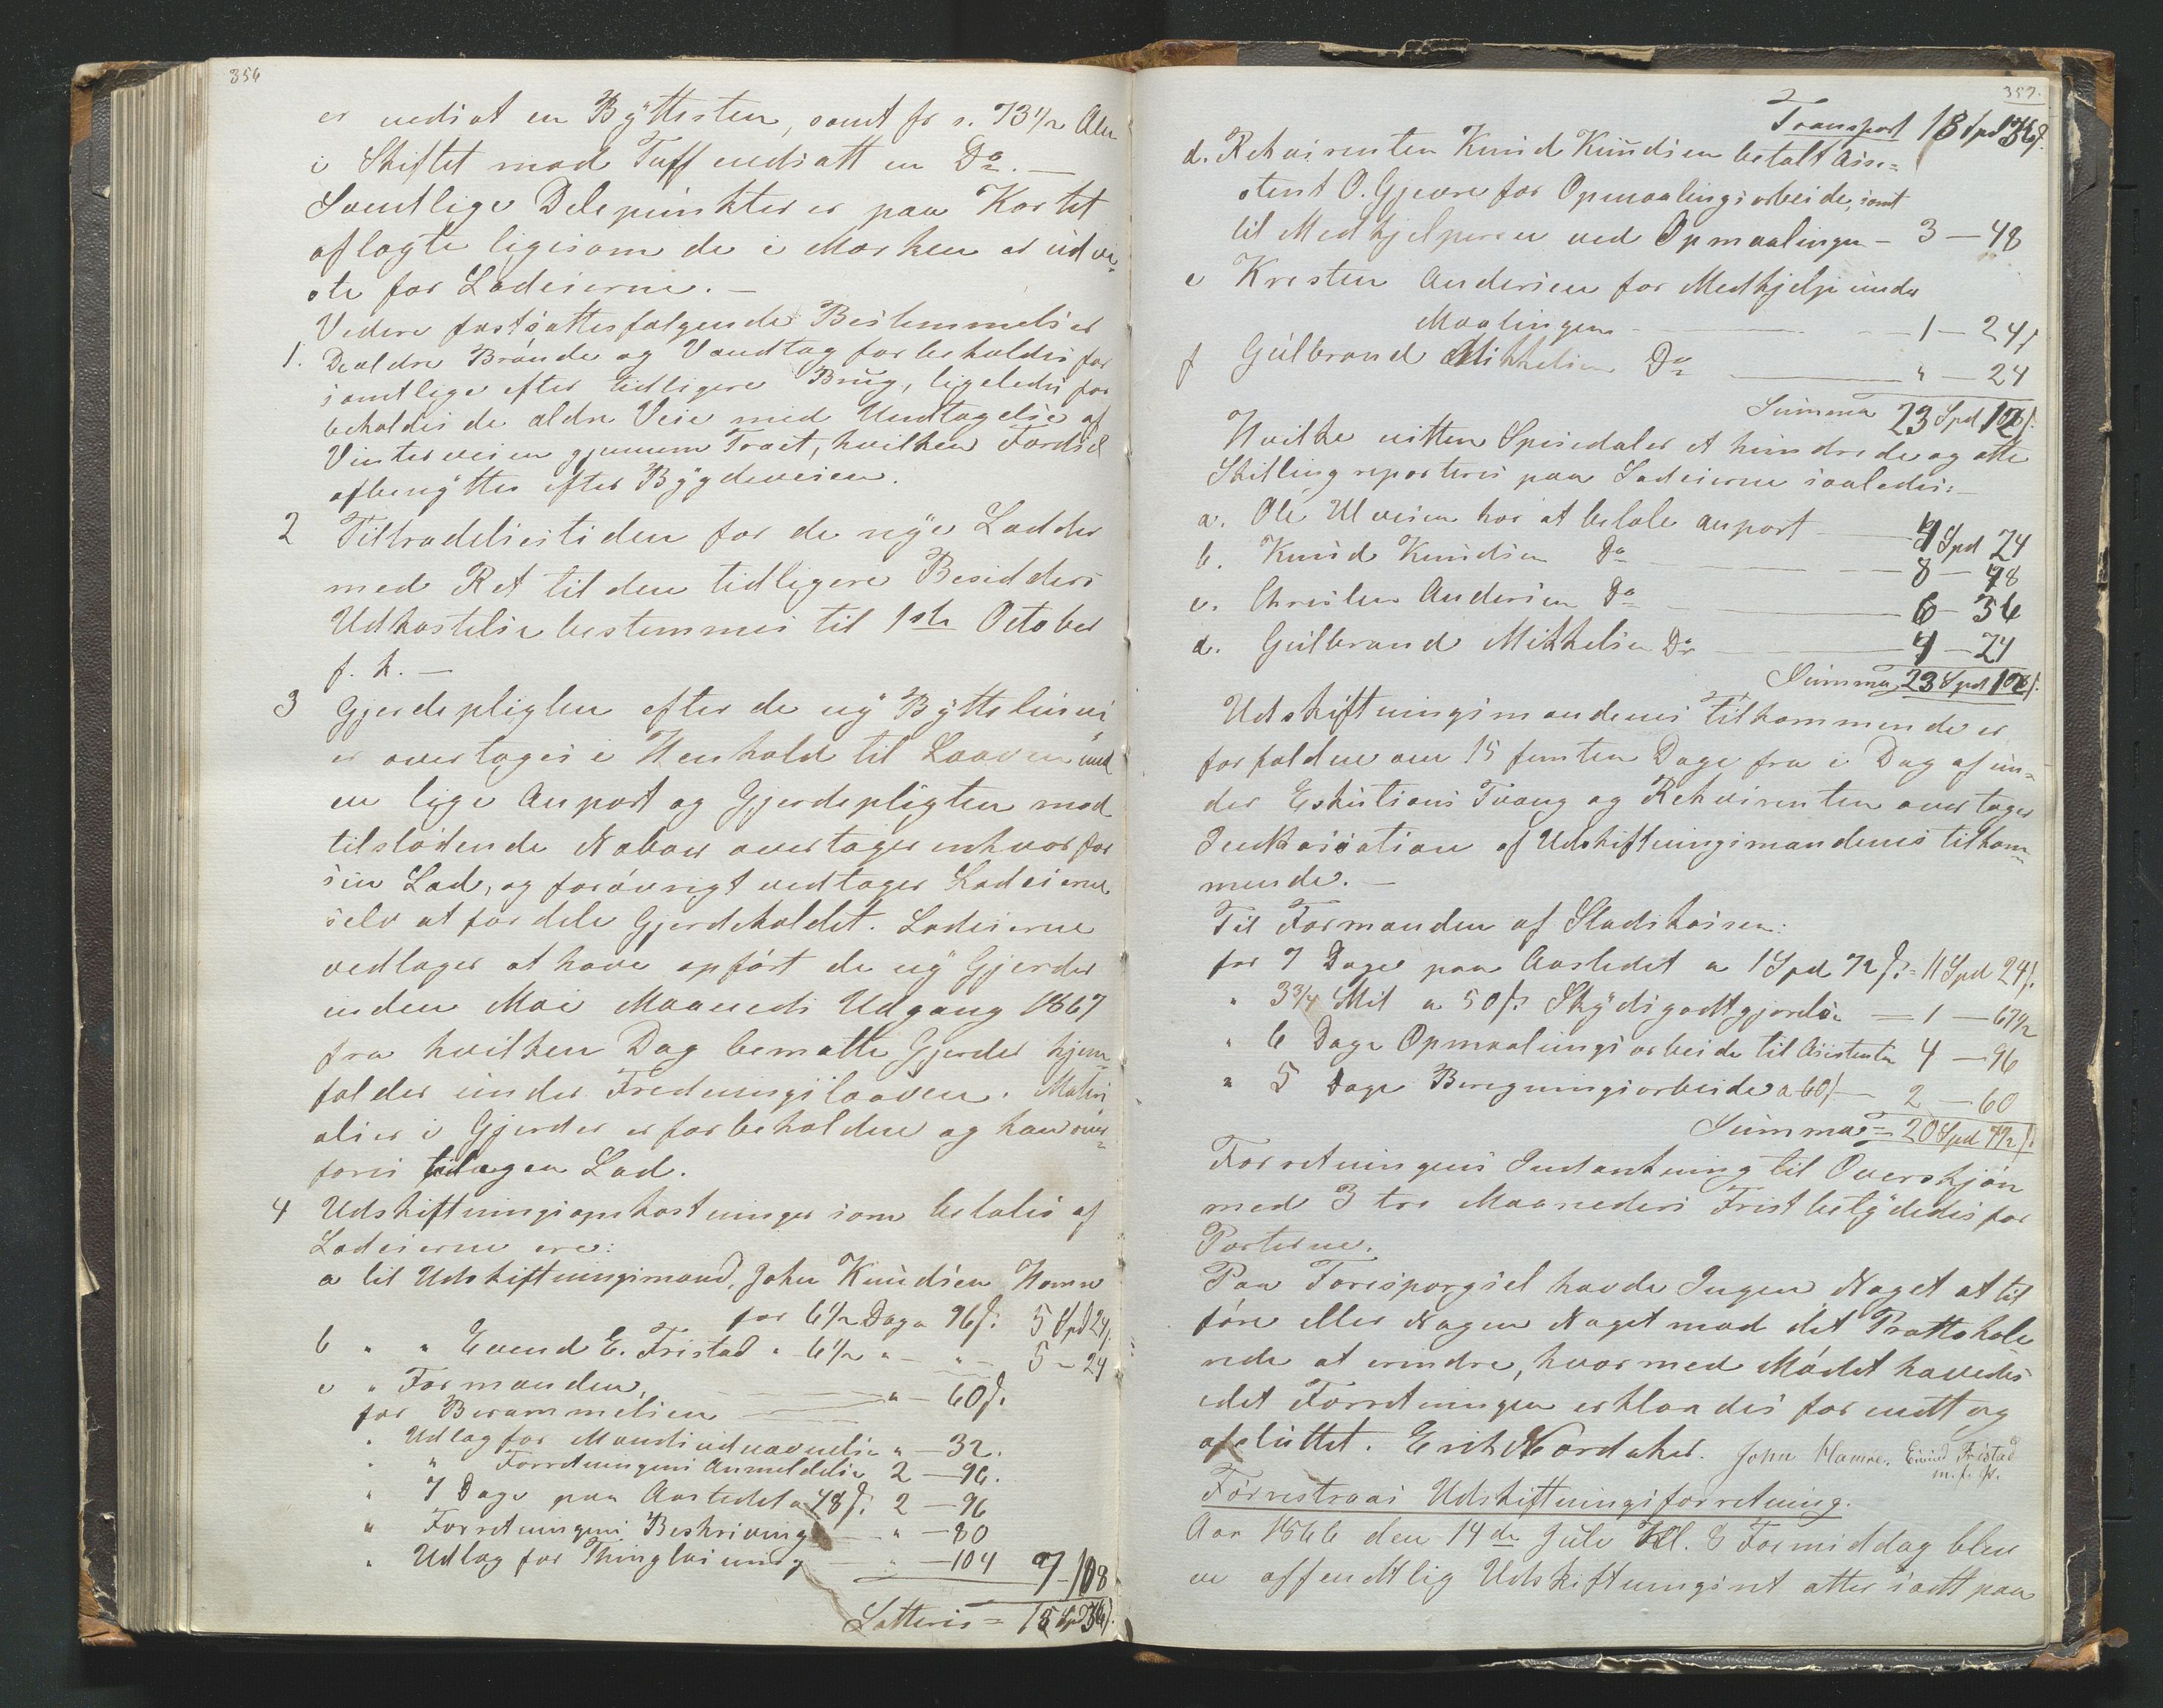 356
er nedsat en Býttesten, samt fr s. 73 1/2 Alen
i Skiftet mod Tuff nedsatt en Do. —
Samtlige Delepunkter er paa Kartet
aflagte ligesom de i Marken er udvi=
ste for Lodeierne. —
Videre fastsattes følgende Bestemmelser
1. De ældre Brønde og Vandtag forbeholdes for
samtlige efter tidligere Brug, ligeledes for
beholdes de ældre Veie med Undtagelse af
Vinterveien gjennem Traet, hvilken Fardsel
afbenýttes efter Býgdeveien.
2 Tiltrædelsestiden for de nýe Lodder
med Ret til den tidligere Besidders
Udhøstelse bestemmes til 1ste October
f. h. —
3 Gjerdepligten efter de ný Býttelinui
er overtages i Henhold til Loven med
en lige Anpart og Gjerdepligten mod
tilstødende Naboer overtager enhver for
sin Lod, og forøvrigt vedtager Lodeierne
selv at fordele Gjerdeholdet. Lodeierne
vedtager at have opført de ný Gjerder
inden Mai Maaneds Udgang 1867
fra hvilken Dag bemælte Gjerder hjem=
falder under Fredningsloven. Materi
alier i Gjerder er forbeholdne og kan over=
føres til egen Lod.
4 Udskiftningsomkostninger som betales af
Lodeierne ere:
a til Udskiftningsmand, John Knudsen Hamre
for 6 1/2 Dag a 96 s. 5 Spd 24 s.
b " " Evend E. Fristad " 6 1/2 " — " — 5 — 24
c " Formanden,
for Berammelsen — " — 60 s.
" Udlag for Mandsudnævnelse " — 32.
" " Forretningens Anmeldelse 2 — 96.
" 7 Dage paa Aastedet a 48 s. 2 — 96
" Forretningens Beskrivning — " — 80
" Udlag for Thinglæsning — " — 104 7 — 108
Latteris = 18 Spd 36 s.
357.
Transport 18 Spd 36 s.
d. Rekvirenten Knud Knudsen betalt Assi=
stent O. Gjevre for Opmaalingsarbeide, samt
til Medhjelperen ved Opmaalingen — 3 — 48
e Kresten Andersen for Medhjelp under
Maalingen — 1 — 24 s
f Gulbrand Mikkelsen Do — " — 24
Summa 23 Spd 12 s.
Hvilke nitten Speciedaler et hundrede og otte
Skilling reparteres paa Lodeierne saaledes: —
a. Ole Ulvesen har at betale anpart — 4 Spd 24
b. Knud Knudsen Do — 8 — 48
c. Christen Andersen Do — 6 — 36
d. Gulbrand Mikkelsen Do — 4 — 24
Summa 23 Spd 12 s.
Udskiftningsmændenes Tilkommende er
forfalden om 15 femten Dage fra i Dag af un=
der Eskutions Tvang og Rekvirenten overtager
Inkassation af Udskiftningsmændenes tilkom=
mende. —
Til Formanden af Stadskassen:
for 7 Dage paa Aastedet a 1 Spd 72 s. = 11 Spd 24 s.
" 3 3/4 Mil a 50 s. Skýdsgodtgjørelse = 1 — 67 1/2
" 6 Dage Opmaalingsarbeide til Assistenten 4 — 96
" 5 Dage Beregningsarbeide a 60 s — 2 — 60
Summa = 20 Spd 7 1/2 s.
Forretningens Indankning til Overskjøn
med 3 tre Maaneders Frist betýdedes for
Parterne.
Paa Forespørgsel havde Ingen Noget at til
føre eller Nogen Noget mod det Prottokole
rede at erindre, hvormed Mødet hævedes
idet Forretningen erklæredes for endt og
afsluttet. Erik Nordaker. John Hamre. Eivind Fristad
m. f. P.
Førrestraas Udskiftningsforretning.
Aar 1866 den 14de Jule Kl. 8 Formiddag blev
en offendtlig Udskiftningsret atter sadt paa